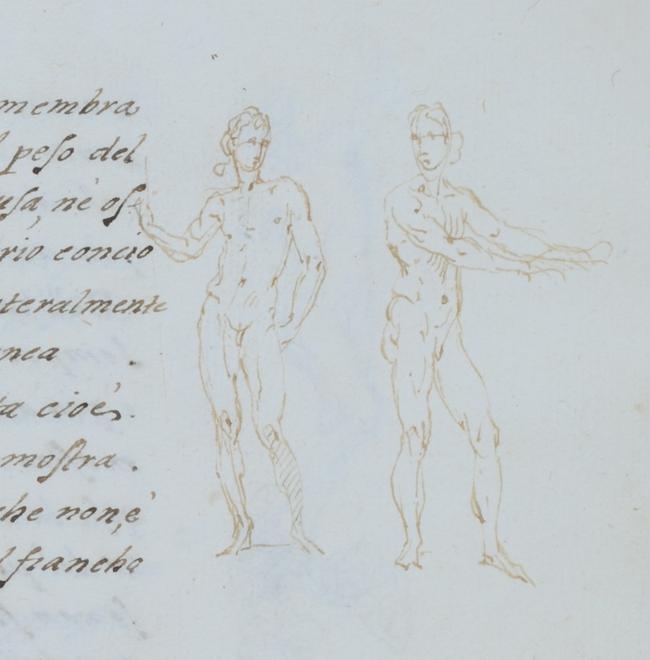 membra
peſo del
uſa, nè oſ
rio concio
teralmente
nea .
ta cioè.
moſtra .
che non, è
l fiancho